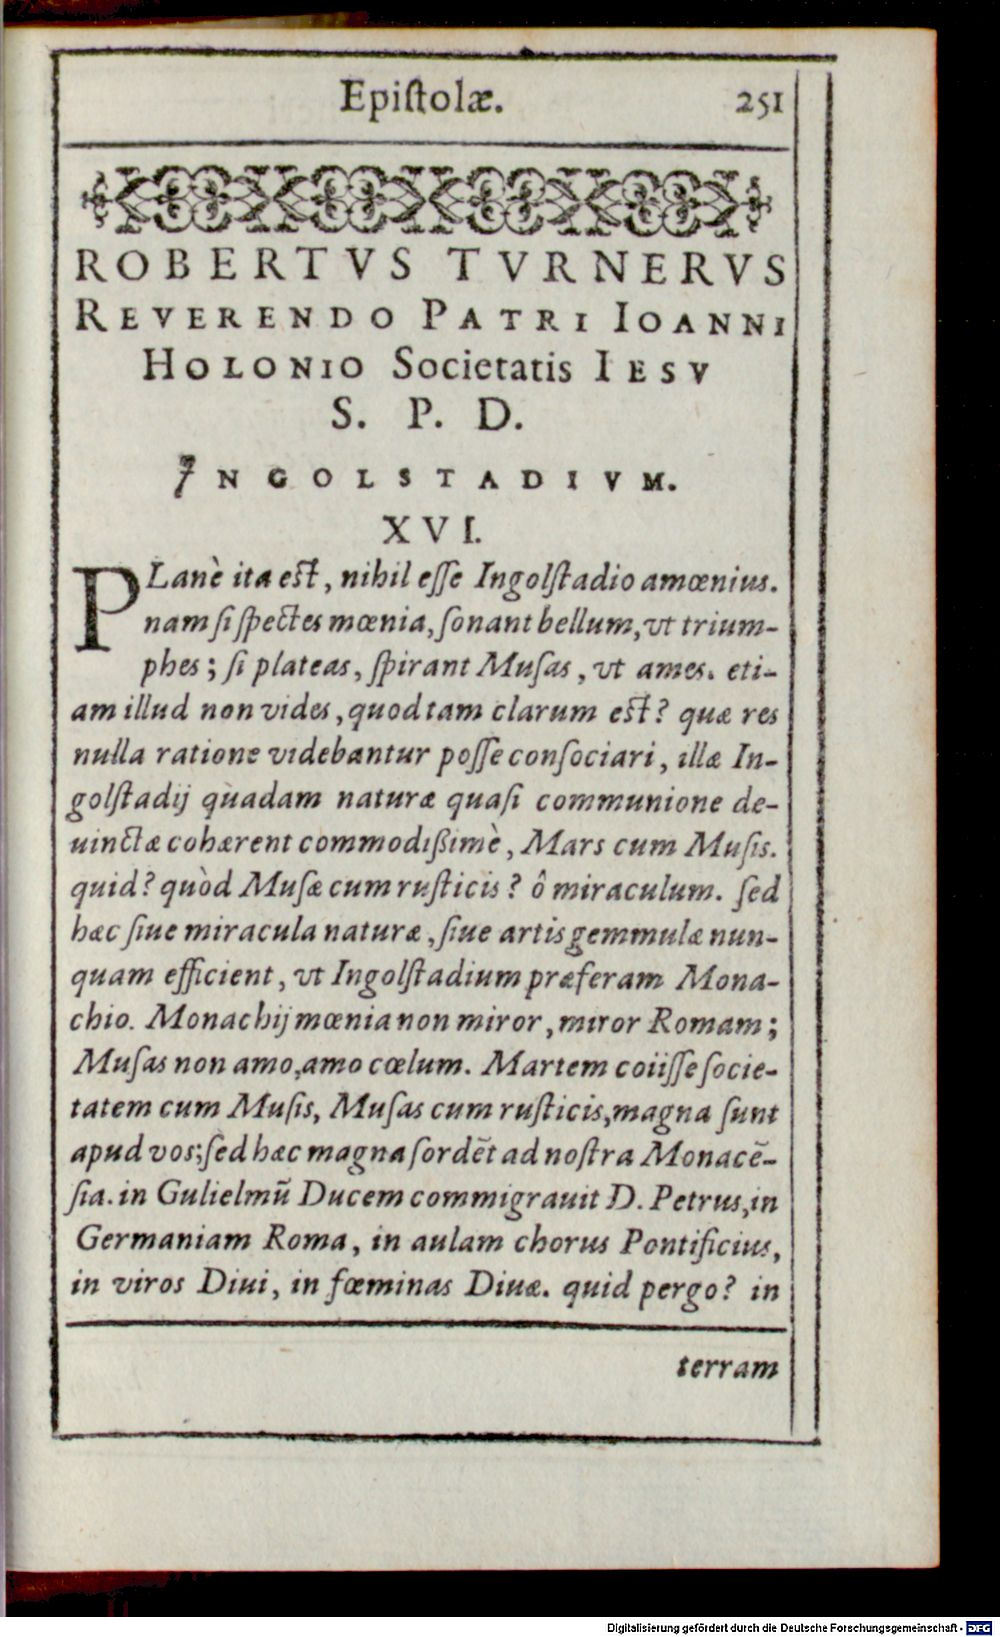 Epiſtolæ. 251
ROBERTVS TVRNERVS
REVERENDO PATRI IOANNI
HOLONIO Societatis IESV
S. P. D.
INGOLSTADIVM.
XVI.
PLanè ita est, nihil eſſe Ingolſtadio amœnius.
nam ſi ſpectes mœnia, ſonant bellum, vt trium-
phes; ſi plateas, ſpirant Muſas, vt ames. eti-
am illud non vides, quod tam clarum est? quæ res
nulla ratione videbantur poſſe conſociari, illæ In-
golſtadij quadam naturæ quaſi communione de-
uinctæ cohærent commodißimè, Mars cum Muſis.
quid? quòd Muſæ cum ruſticis? ô miraculum. ſed
hæc ſiue miracula naturæ, ſiue artis gemmulæ nun-
quam efficient, vt Ingolſtadium præferam Mona-
chio. Monachij mœnia non miror, miror Romam;
Muſas non amo, amo cœlum. Martem coiiſſe ſocie-
tatem cum Muſis, Muſas cum ruſticis, magna ſunt
apud vos; ſed hæc magna ſordēt ad noſtra Monacē-
ſia. in Gulielmū Ducem commigrauit D. Petrus, in
Germaniam Roma, in aulam chorus Pontificius,
in viros Diui, in fœminas Diuæ. quid pergo? in
terram
Digitalisierung gefördert durch die Deutsche Forschungsgemeinschaft - DFG